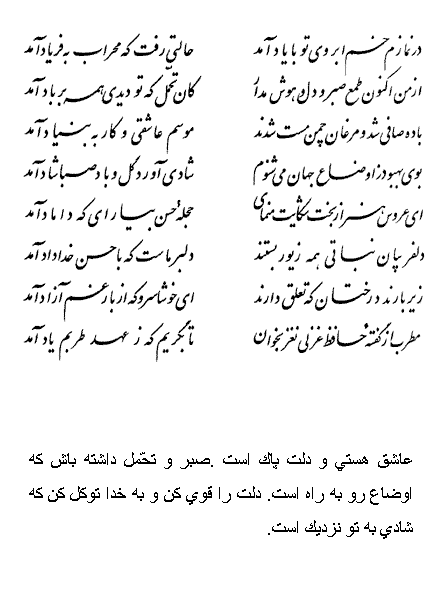 در نمازم خم ابروی تو با یاد آمد حالتی رفت که محراب به فریاد آمد
از من اکنون طمع صبر و دل و هوش مدار کان تحمّل که تو دیدی همه بر باد آمد
باده صافی شد و مرغان چمن مست شدند موسم عاشقی و کار به بنیاد آمد
بوی بهبود ز اوضاع جهان می‌شنوم شادی آورد گل و باد صبا شاد آمد
ای عروس هنر از بخت شکایت منمای حجله حسن بیارای که داماد آمد
دلفریبان نباتی همه زیور بستند دلبر ماست که با حسن خداداد آمد
زیر بارند درختان که تعلق دارند ای خوشا سرو که از بار غم آزاد آمد
مطرب از گفته حافظ غزلی نغز بخوان تا بگریم که ز عهد طربم یاد آمد
عاشق هستي و دلت پاك است .صبر و تحّمل داشته باش كه
اوضاع رو به راه است. دلت را قوي كن و به خدا توكل كن كه
شادي به تو نزديك است.